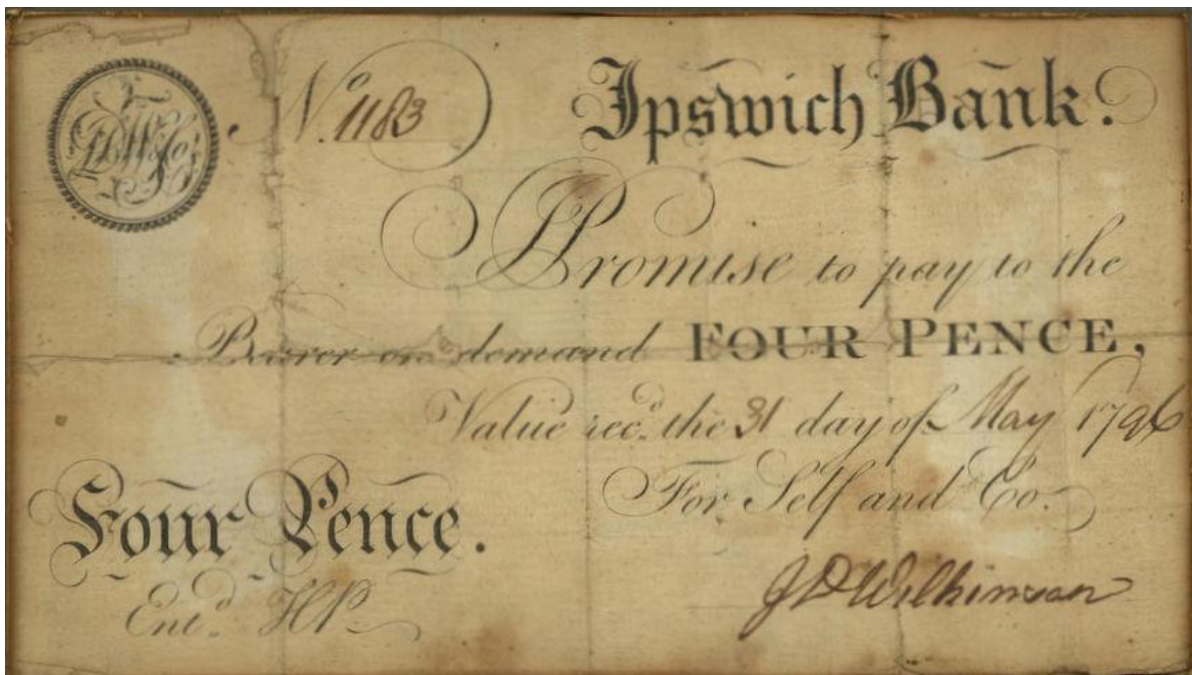 JDW & Co's
No. 1183
Ipswich Bank.
I Promise to pay to the
Bearer on demand FOUR PENCE,
Value rec.d the 31 day of May 1796
For Self and Co.
Four Pence.
Ent.d HP
JD Wilkinson